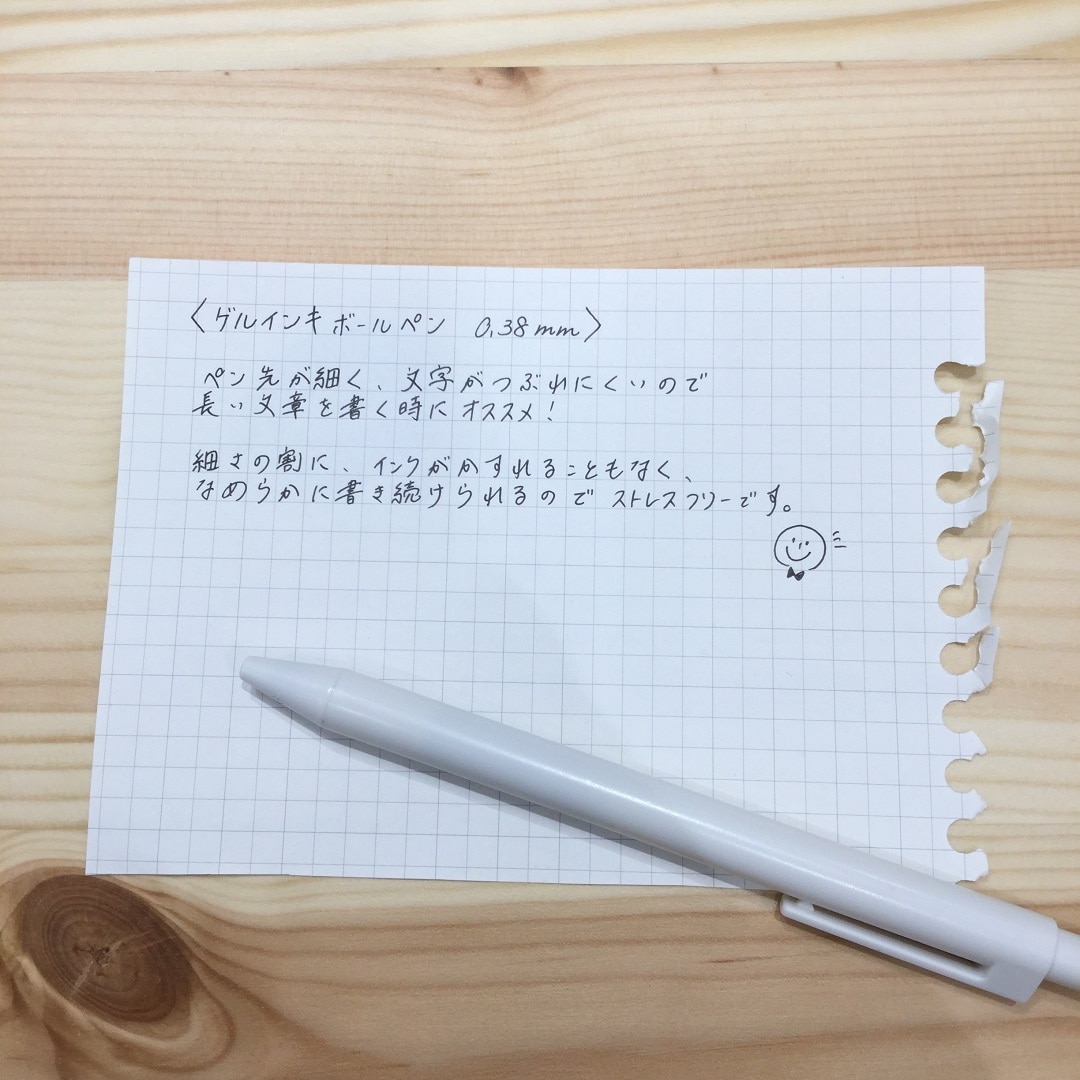 〈ゲルインキボールペン 0.38mm〉
ペン先が細く、文字がつぶれにくいので
長い文章を書く時にオススメ!
細さの割に、インクがかすれることもなく、
なめらかに書き続けられるのでストレスフリーです。